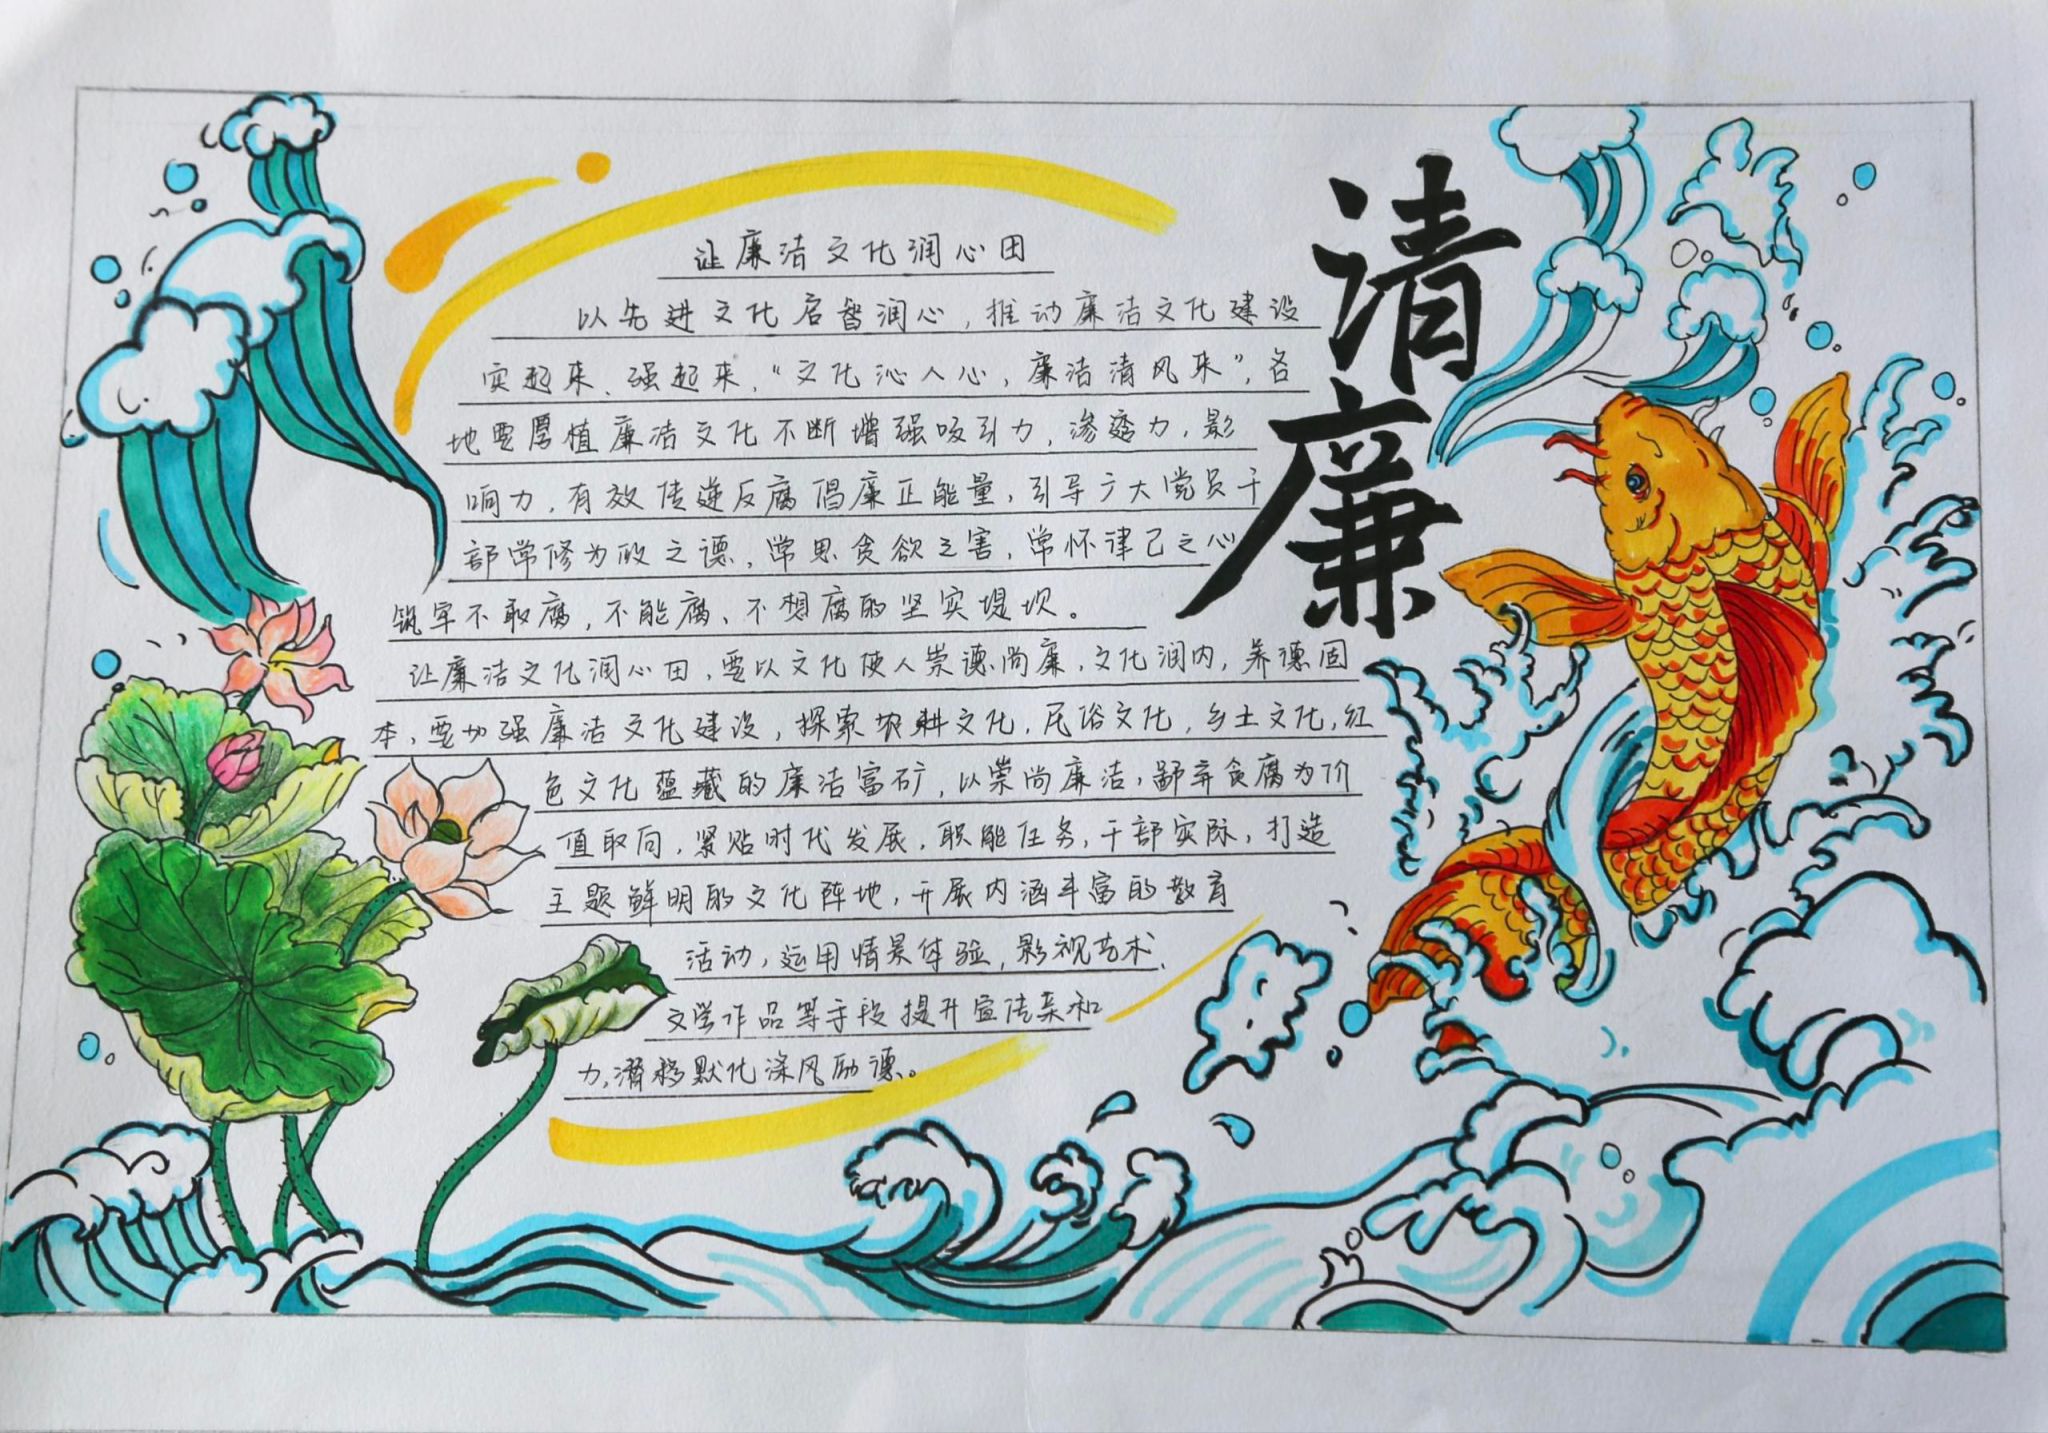 清廉
让廉洁文化润心田
以先进文化启智润心,推动廉洁文化建设
实起来、强起来,“文化沁人心,廉洁清风来”,各
地要厚植廉洁文化不断增强吸引力,渗透力,影
响力,有效传递反腐倡廉正能量,引导广大党员干
部常修为政之德,常思贪欲之害,常怀律己之心
筑牢不敢腐,不能腐、不想腐的坚实堤坝。
让廉洁文化润心田,要以文化使人崇德尚廉,文化润内,养德固
本,要加强廉洁文化建设,探索农耕文化,民俗文化,乡土文化,红
色文化蕴藏的廉洁富矿,以崇尚廉洁,鄙弃贪腐为价
值取向,紧贴时代发展,职能任务,干部实际,打造
主题鲜明的文化阵地,开展内涵丰富的教育
活动,运用情景体验,影视艺术、
文学作品等手段提升宣传亲和
力,潜移默化涤风励德。